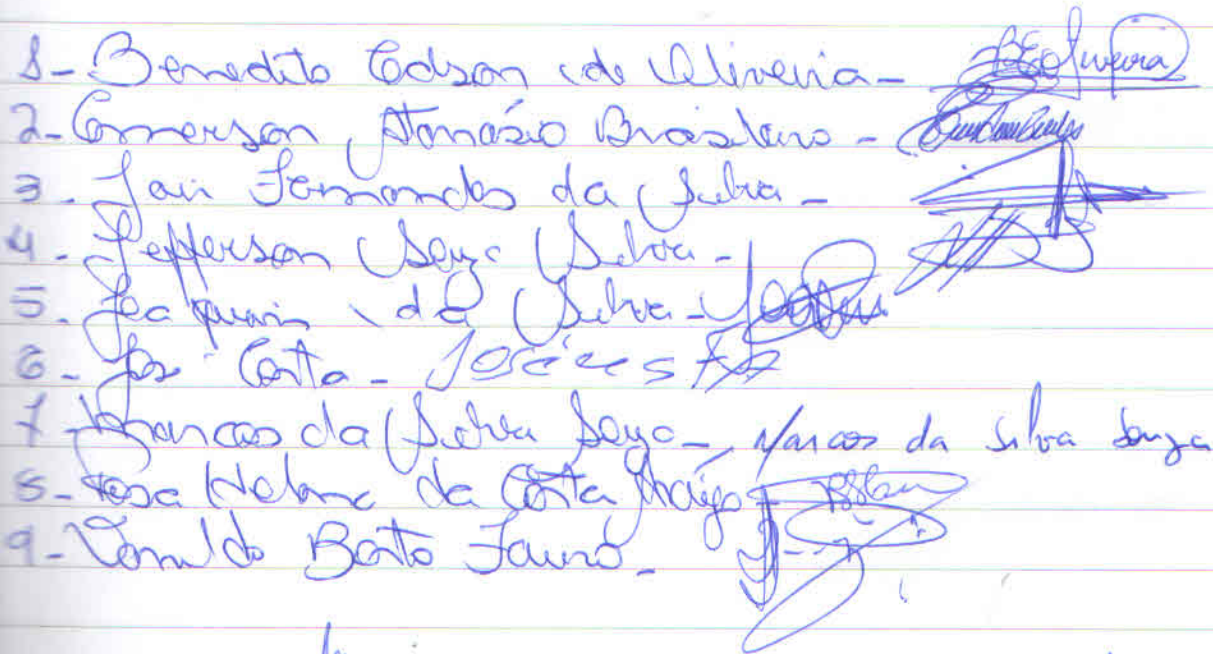 1- Benedito Edson de Oliveira - BEOliveira
2- Emerson Atanásio Brasileiro -
3- Jair Fernandes da Silva -
4- Jefferson Souza Silva -
5- Joaquim da Silva -
6- José Costa - José Costa
7- Marcos da Silva Souza - Marcos da Silva Souza
8- Rosa Helena da Costa Araújo -
9- Bento